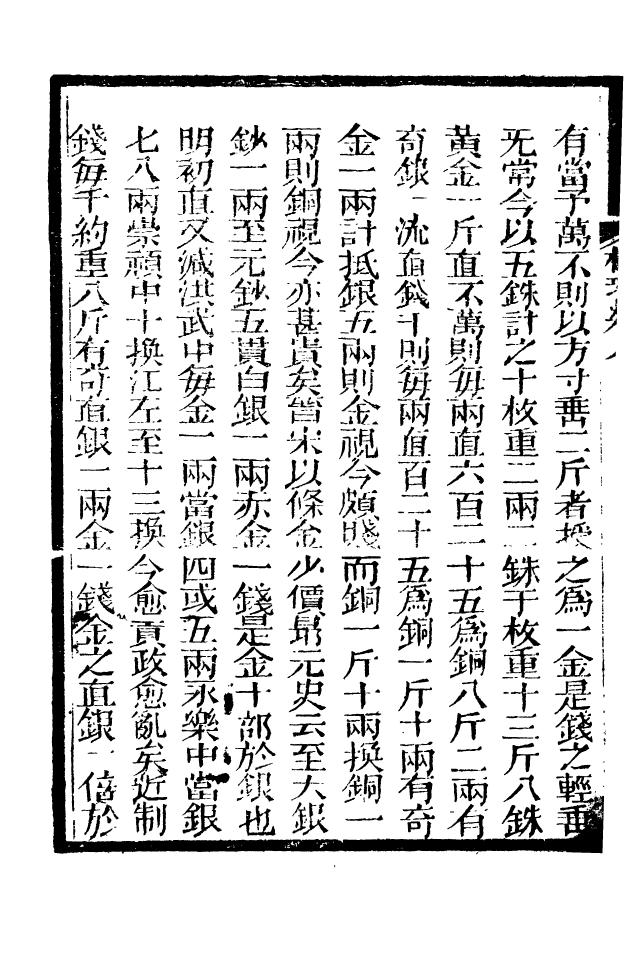 有當予萬不則以方寸重二斤者授之為一金是錢之輕重
无常今以五銖計之十枚重二兩二銖千枚重十三斤八銖
黃金一斤直不萬則每兩直六百二十五為銅八斤二兩有
奇銀一流直錢千則每兩直百二十五為銅一斤十兩有奇
金一兩計抵銀五兩則金視今頗賤而銅一斤十兩換銅一
兩則銅視今亦甚貴矣嘗宋以條金少價昂元史云至大銀
鈔一兩至元鈔五貫白銀一兩赤金一錢是金十部於銀也
明初直又減洪武中每金一兩當銀四或五兩永樂中當銀
七八兩崇禎中十換江左至十三換今愈貢政愈亂矣近制
錢每千約重八斤有奇直銀一兩金一錢金之直銀一倍於